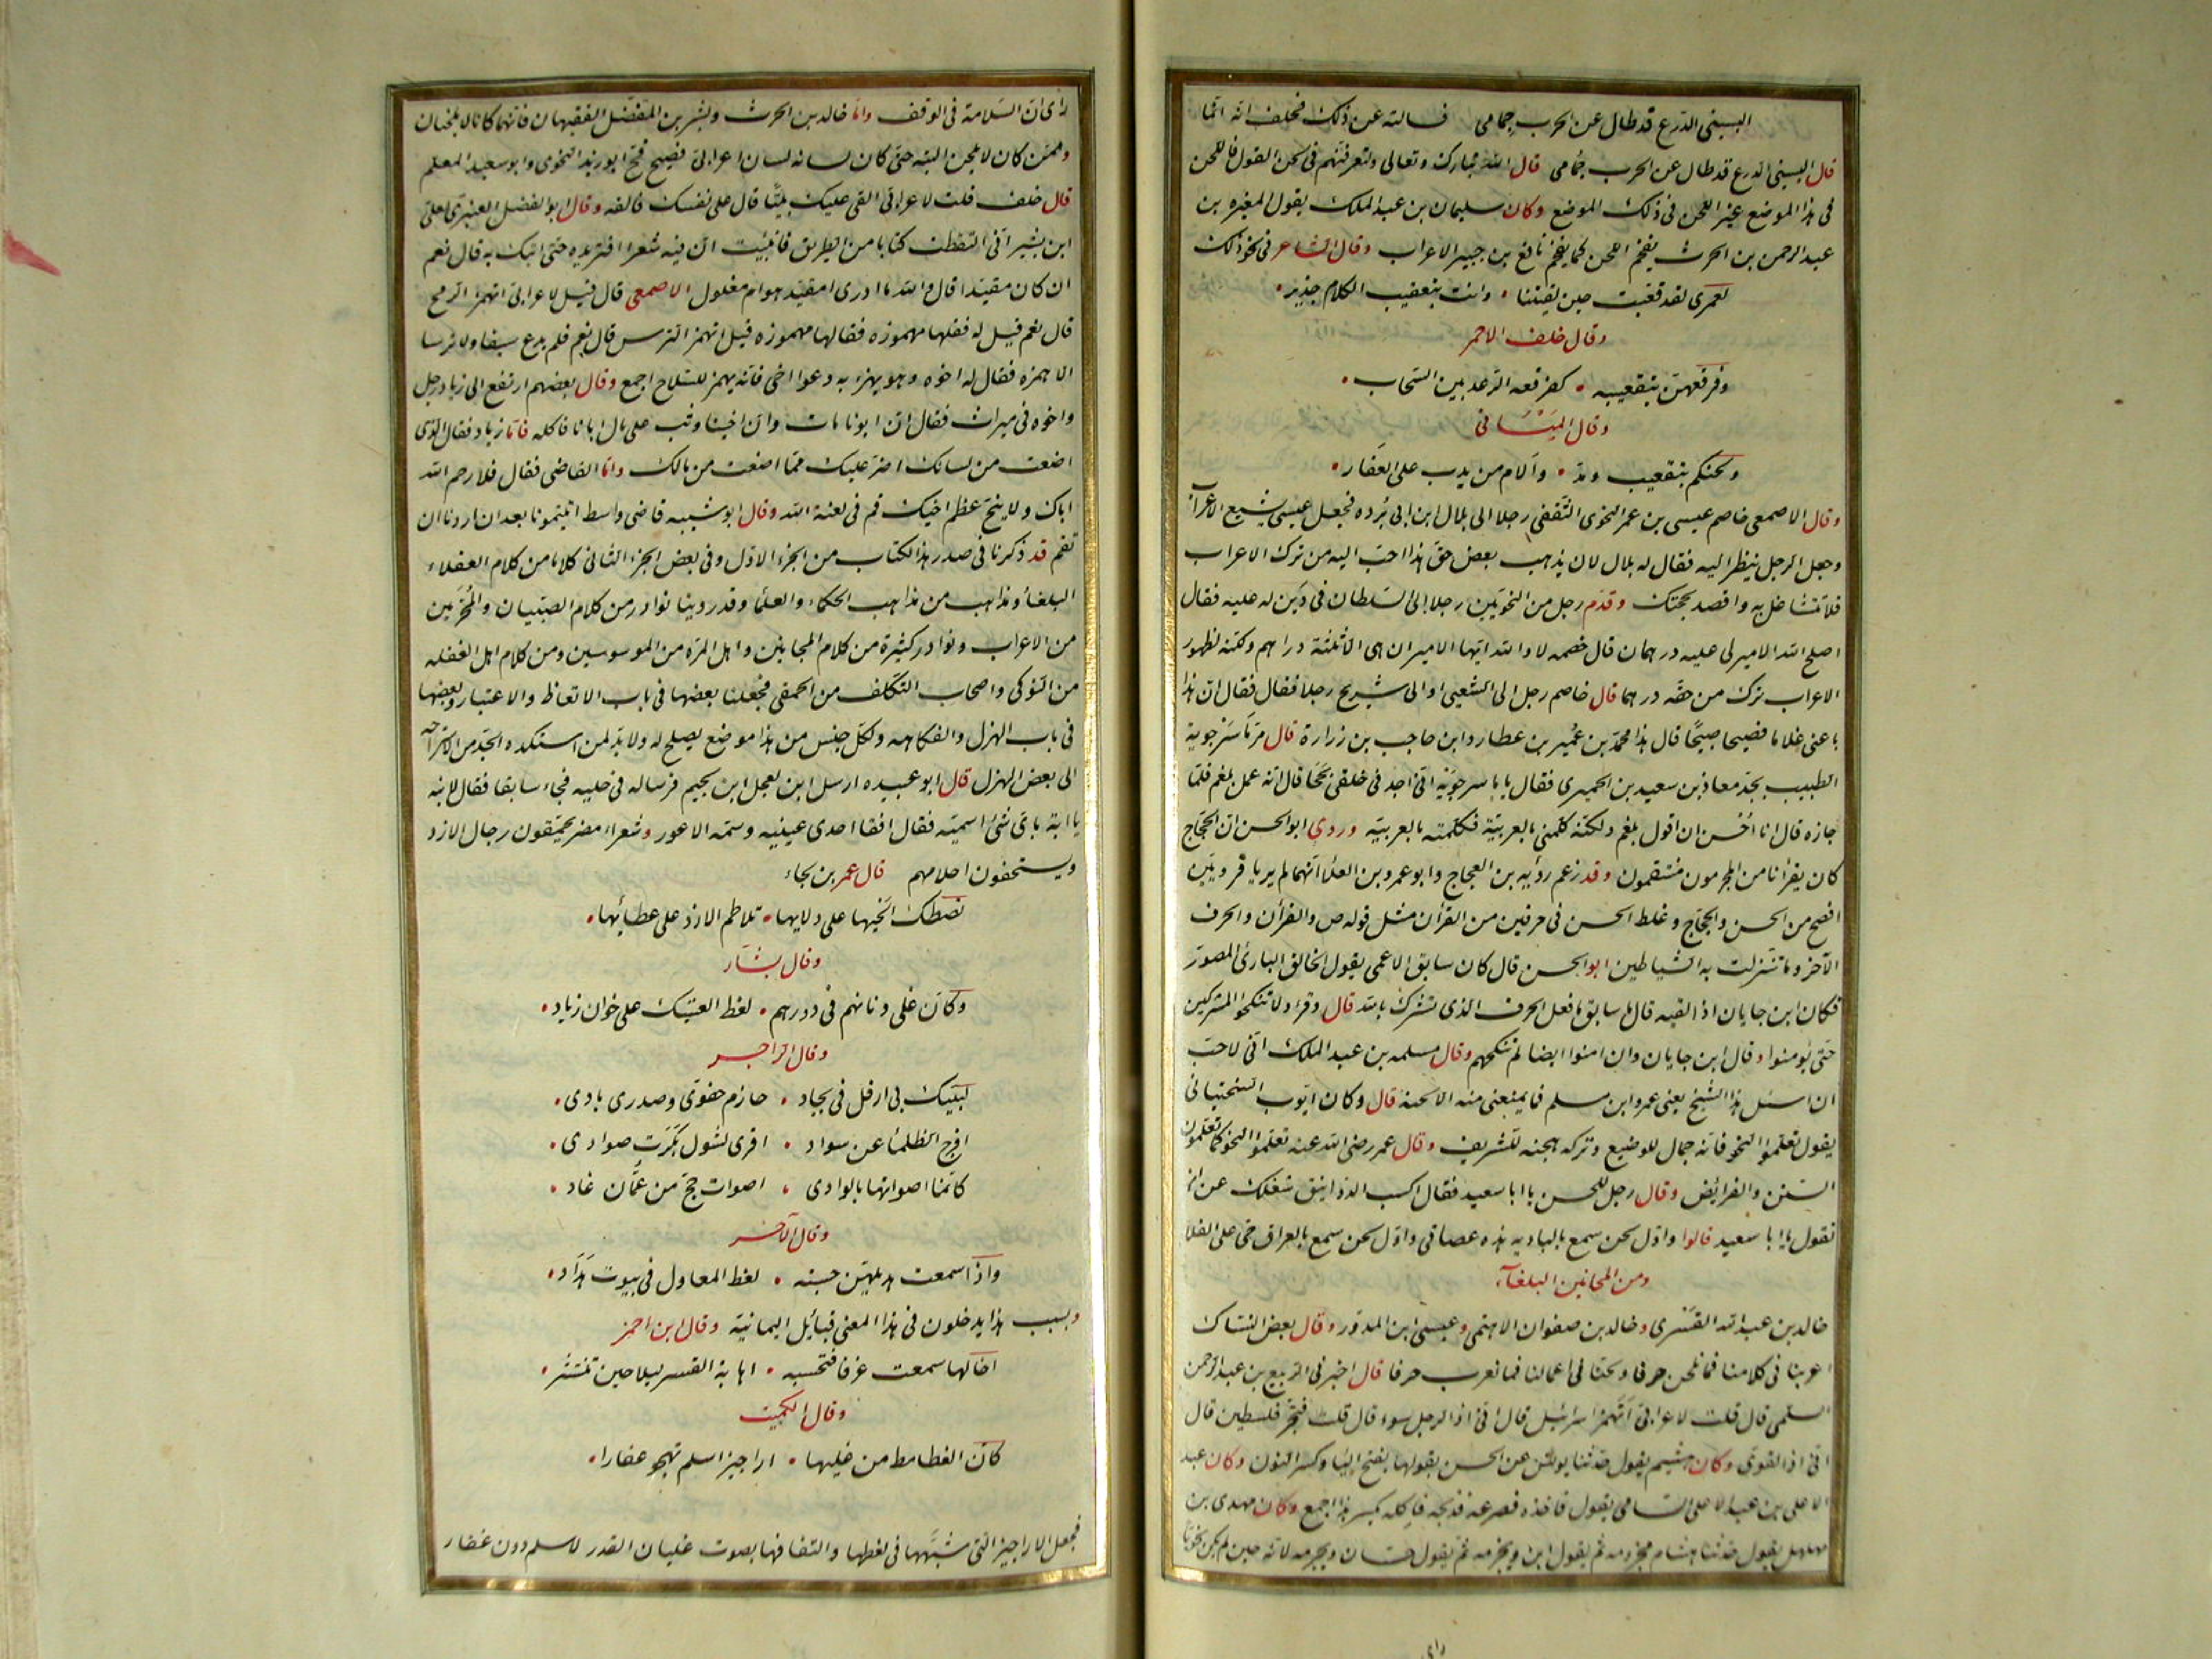 البسنى الدرع قد طال عن الحرب جمامى فسالته عن ذلك فحلف انه انما
قال البسنى الدرع قد طال عن الحرب جمامى قال الله تبارك وتعالى ولتعرفنهم فى لحن القول فاللحن
فى هذا الموضع غير اللحن فى ذلك الموضع وكان سليمان بن عبد الملك يقول المغيره بن
عبد الرحمن بن الحرث يفخم اللحن كما يفخم نافع بن جبير الاعراب وقال الشاعر فى نحو ذلك
لعمرى لقد قعبت حين لقيتنا وانت بتعقيب الكلام جدير
وقال خلف الاحمر
وفرقعهن بتقعيبه كفرقعه الرعد بين السحاب
وقال الميسانى
ولحنكم بتقعيب ومد والام من يدب على العفار
وقال الاصمعى خاصم عيسى بن عمر النحوى الثقفى رجلا الى بلال ابن ابى برده فجعل عيسى يشبع الاعراب
وجعل الرجل ينظر اليه فقال له بلال لان يذهب بعض حق هذا احب اليه من ترك الاعراب
فلا تتشاغل به واقصد بحجتك وقدم رجل من النحويين رجلا الى السلطان فى دين له عليه فقال
اصلح الله الامير لى عليه درهمان قال خصمه لا والله ايها الامير ان هى الا ثلثة دراهم ولكنه لظهور
الاعراب ترك من حقه درهما قال خاصم رجل الى الشعبى او الى شريح رجلا فقال فقال ان هذا
باعنى غلاما فصيحا صبيحا قال هذا محمد بن عمير بن عطارد ابن حاجب بن زرارة قال مر ماسرجوية
الطبيب بجد معاذ بن سعيد بن الحميرى فقال يا ماسرجويه انى اجد فى حلقى بححا قال انه عمل بلغم فلما
جازه قال انا احسن ان اقول بلغم ولكنه كلمنى بالعربية فكلمته بالعربية وروي ابو الحسن ان الحجاج
كان يقرأ انا من المجرمون منتقمون وقد زعم رؤبه بن العجاج وابو عمرو بن العلا انهما لم يريا قرويين
افصح من الحسن والحجاج وغلط الحسن فى حرفين من القرأن مثل قوله ص والقرأن والحرف
الآخر وما تنزلت به الشياطين ابو الحسن قال كان سابق الاعمى يقول الخالق البارئ المصور
فكان ابن جابان اذا لقيه قال يا سابق ما فعل الحرف الذى تشرك بالله قال وقرء ولا تنكحوا المشركين
حتى يؤمنوا وقال ابن جابان وان امنوا ايضا لم ننكحهم وقال مسلمه بن عبد الملك انى لاحب
ان اسئل هذا الشيخ يعنى عمرو ابن مسلم فما يمنعنى منه الا لحنه قال وكان ايوب السختيانى
يقول تعلموا النحو فانه جمال للوضيع وتركه هجنه للشريف وقال عمر رضى الله عنه تعلموا النحو كما تعلمون
السنن والفرائض وقال رجل للحسن يا ابا سعيد فقال اكسب الدوانيق شغلك عن ان
تقول يا ابا سعيد قالوا واول لحن سمع بالباديه هذه عصاتى واول لحن سمع بالعراق حى على الفلاح
ومن المحانين البلغاء
خالد بن عبد الله القسرى وخالد بن صفوان الاهتمى وعيسى ابن المدور وقال بعض النساك
اعربنا فى كلامنا فما نلحن حرفا ولحنا فى اعمالنا فما نعرب حرفا قال اخبرنى الربيع بن عبد الرحمن
السلمى قال قلت لاعرابى اتهمز اسرائيل قال انى اذا لرجل سوء قال قلت فتجر فلسطين قال
انى اذا لقوى وكان هشيم يقول حدثنا يونس عن الحسن يقولها بفتح اليا وكسر النون وكان عبد
الاعلى بن عبد الاعلى السامى يقول فاخذه فصرعه فذبحه فاكله بكسر هذا اجمع وكان مهدى بن
مهلهل يقول حدثنا هشام مجزومه ثم يقول ابن ويجزمه ثم يقول حسان ويجزمه لانه حين لم يكن نحويا
راى
راى ان السلامة فى الوقف واما خالد بن الحرث وبشر بن المفضل الفقيهان فانهما كانا لا يلحنان
وممن كان لا يلحن البته حتى كان لسانه لسان اعرابى فصيح فتح ابو زيد النحوى وابو سعيد المعلم
قال خلف قلت لاعرابى القى عليك بيتا قال على نفسك فالقه وقال ابو الفضل العنبرى لعلى
ابن بشير انى التقطت كتابا من الطريق فانبئت ان فيه شعرا افتريده حتى اتيك به قال نعم
ان كان مقيدا قال والله ما ادرى امقيد هو ام مغلول الاصمعى قال قيل لاعرابى اتهمز الرمح
قال نعم قيل له فقلها مهموزه فقالها مهموزه قيل اتهمز الترس قال نعم فلم يدع سيفا ولا ترسا
الا همزه فقال له اخوه وهو يهزا به دعوا اخى فانه يهمز السلاح اجمع وقال بعضهم ارتفع الى زياد رجل
واخوه فى ميراث فقال ان ابونا مات وان اخينا وثب على مال ابانا فاكله فاما زياد فقال الذى
اضعت من لسانك اضر عليك مما اضعت من مالك واما القاضى فقال فلا رحم الله
اباك ولا ينح عظم اخيك قم فى لعنة الله وقال ابو شيبه قاضى واسط اتيتمونا بعد ان اردنا ان
نقم قد ذكرنا فى صدر هذا الكتاب من الجزء الاول وفى بعض الجزء الثانى كلاما من كلام العقلاء
البلغأ ومذاهب من مذاهب الحكماء والعلما وقد روينا نوادر من كلام الصبيان والمحرمين
من الاعراب ونوادر كثيرة من كلام المجانين واهل المرة من الموسوسين ومن كلام اهل الغفله
من النوكى واصحاب التكلف من الحمقى فجعلنا بعضها فى باب الاتعاظ والاعتبار وبعضها
فى باب الهزل والفكاهه ولكل جنس من هذا موضع يصلح له ولابد لمن استكده الجد من الاستراحه
الى بعض الهزل قال ابو عبيده ارسل ابن لعجل ابن لجيم فرساله فى حلبه فجاء سابقا فقال لابنه
يا ابة باى شئ اسميه فقال افقا احدى عينيه وسمه الاعور وشعراء مضر يحمقون رجال الازد
ويستخفون احلامهم قال عمر بن لجاء
تصطك الحيها على دلايها تلاطم الازد على عطائها
وقال بشار
وكأن غلى دنانهم فى دورهم لغط العتيك على خوان زياد
وقال الراجز
لبيك بى ارفل فى بجاد حازم حقوى وصدرى بادى
افرج الظلما عن سواد اقرى لشول بكرت صوادى
كانما اصواتها بالوادى اصوات حج من عمان غاد
وقال الآخر
واذا سمعت هديلهن حسبته لغط المعاول فى بيوت هداد
وبسبب هذا يدخلون فى هذا المعنى قبائل اليمانية وقال ابن احمر
اخالها سمعت عزفا فتحسبه اهابة القسر ليلا حين تنتشر
وقال الكميت
كان الغطامط من غليها اراجيز اسلم تهجو غفارا
فجعل الاراجيز التى شبهها فى لغطها والتفافها بصوت غليان القدر لاسلم دون غفار